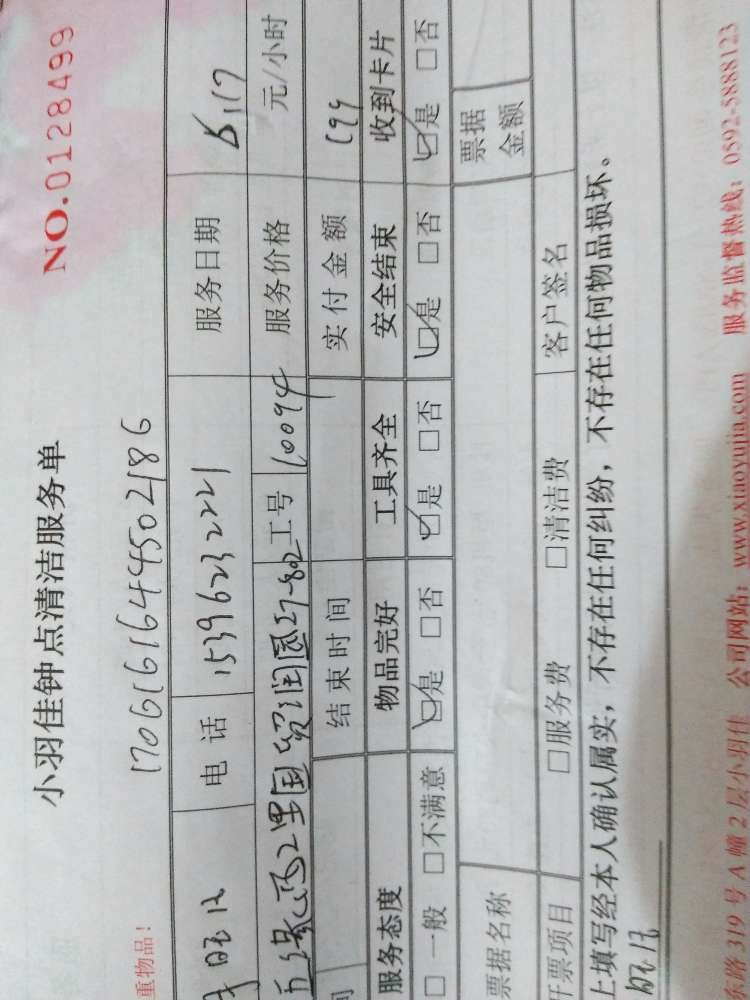 小羽佳钟点清洁服务单
NO.0128499
重物品!
1706161644502186
电话 15396232221 服务日期
国贸润园27-802 工号 10094 服务价格 元/小时
结束时间 实付金额 199
服务态度 物品完好 工具齐全 安全结束 收到卡片
□一般 □不满意 ☑是 □否 ☑是 □否 ☑是 □否 ☑是 □否
票据名称 票据金额
开票项目 □服务费 □清洁费 客户签名
上填写经本人确认属实，不存在任何纠纷，不存在任何物品损坏。
东路319号A幢2层小羽佳 公司网站：www.xiaoyujia.com 服务监督热线：0592-5888123